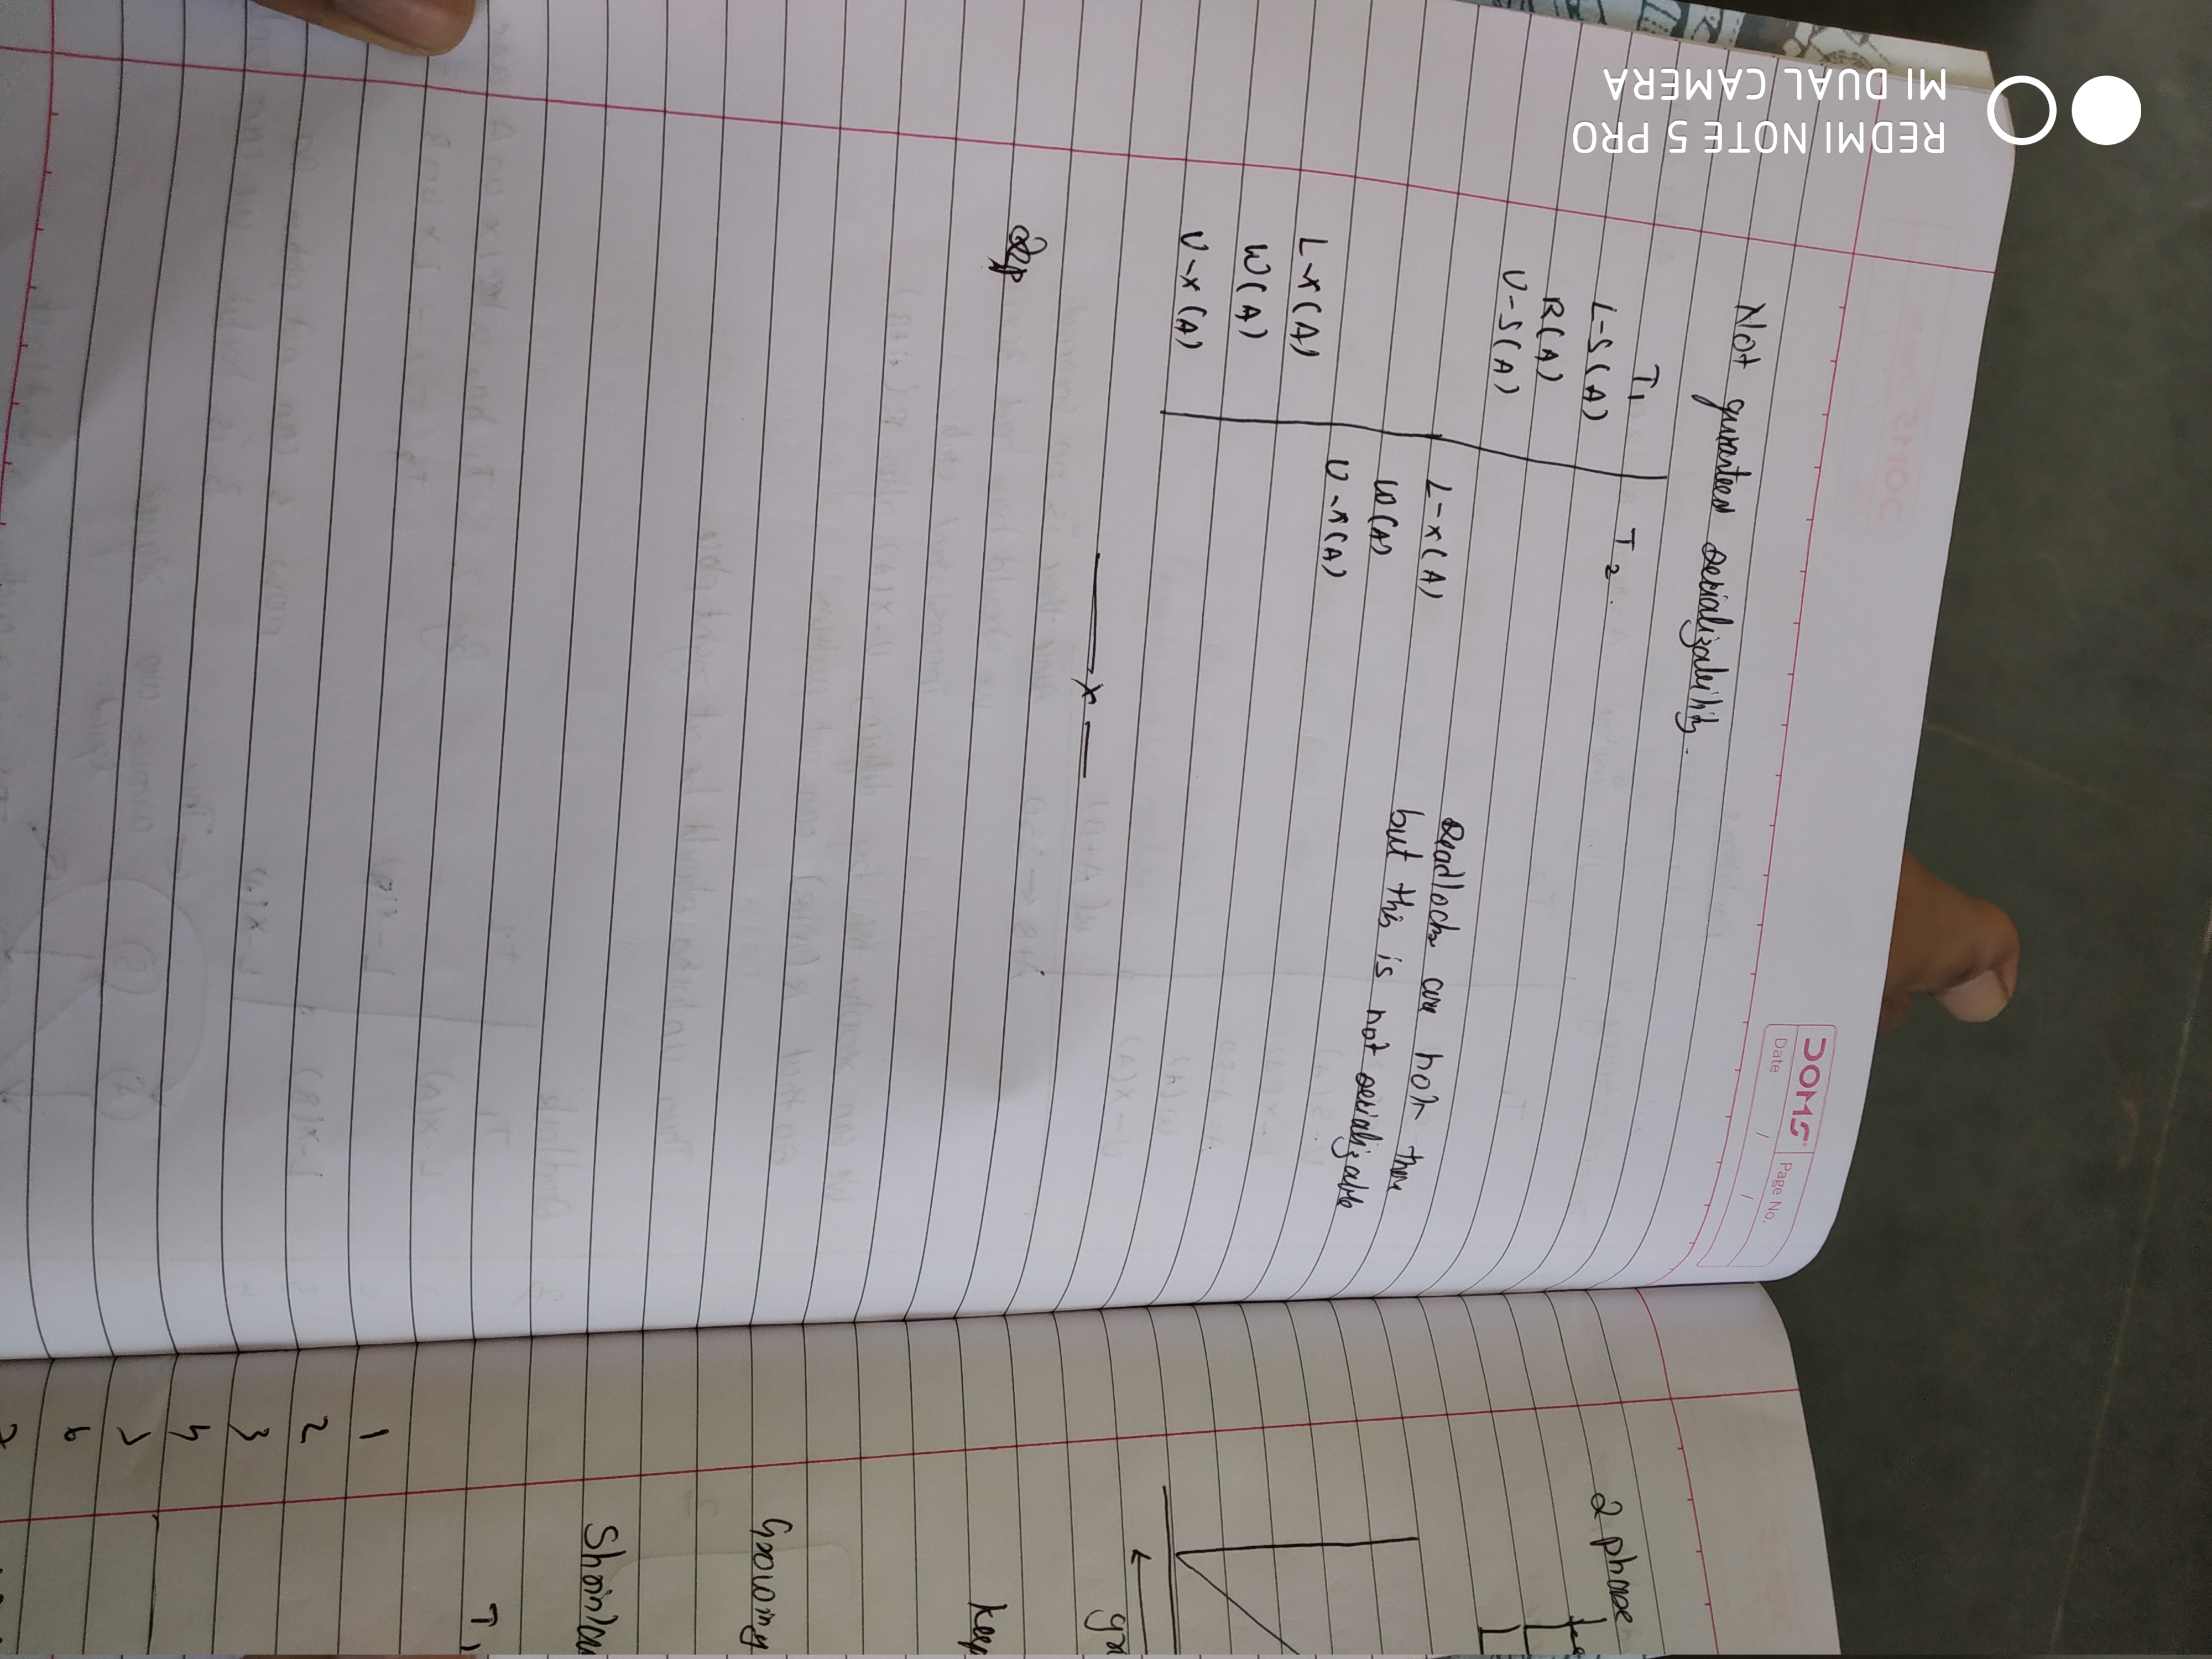 DOMS
Date / /
Page No.
Not guranteed serializability.
T1 T2
L-S(A)
R(A)
U-S(A)
L-X(A)
W(A)
U-X(A)
L-X(A)
W(A)
U-X(A)
Deadlocks are not there
but this is not serializable
x
2 phase
gr
Keep
Growing
T1
1
2
3
4
5
6
7
REDMI NOTE 5 PRO
MI DUAL CAMERA